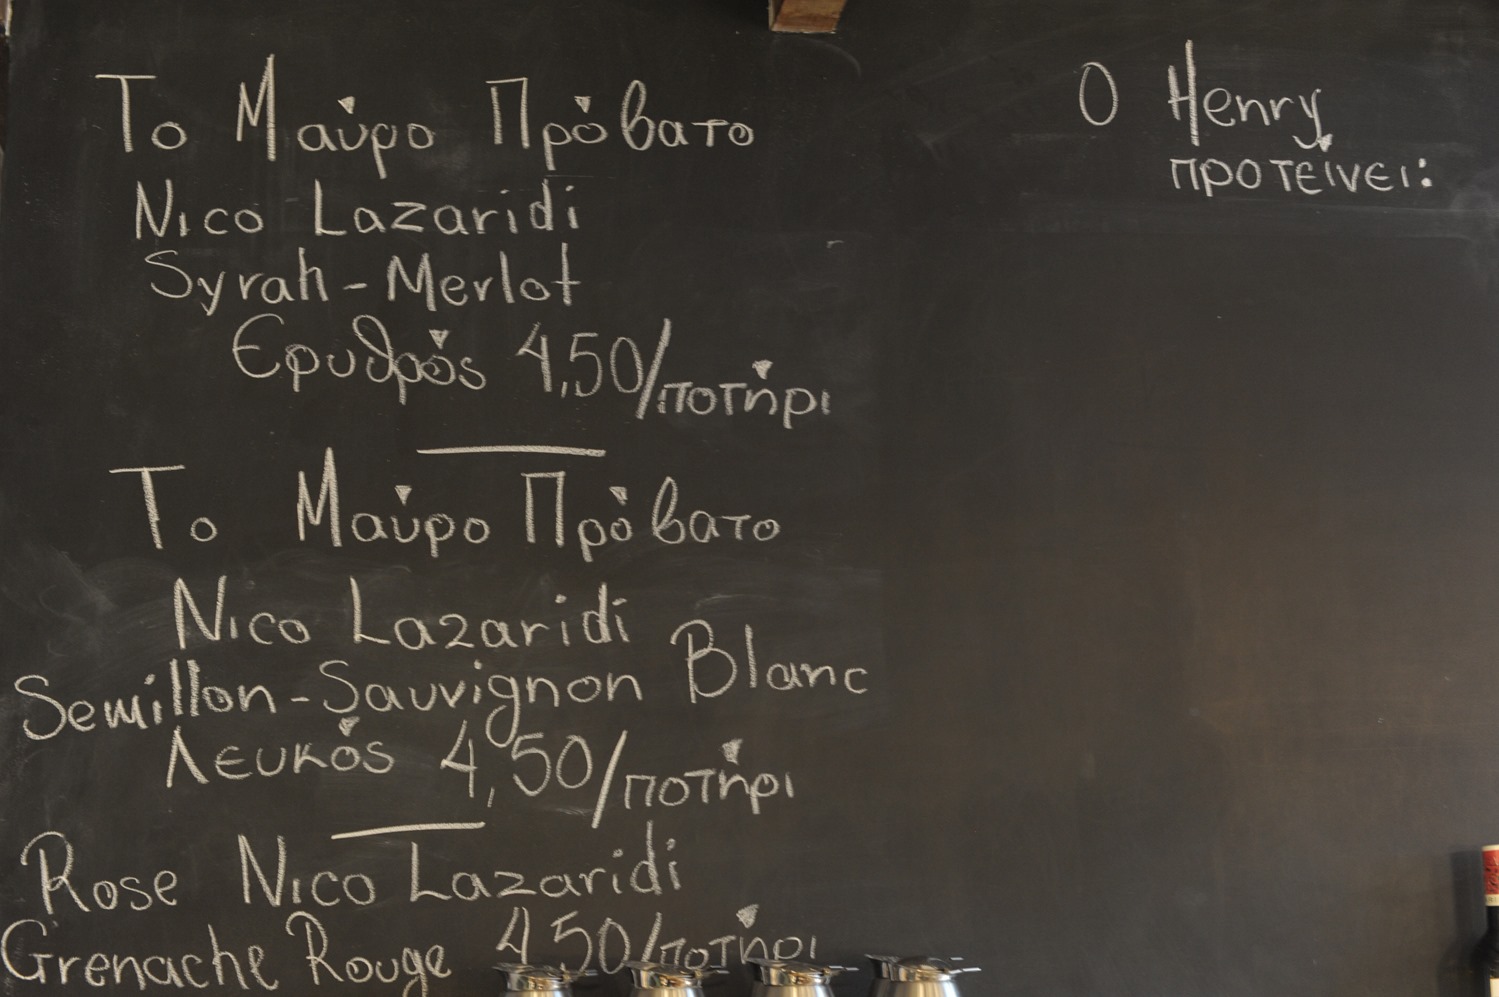 Το Μαύρο Πρόβατο
Nico Lazaridi
Syrah-Merlot
Ερυθρός 4,50/ποτήρι
Το Μαύρο Πρόβατο
Nico Lazaridi
Semillon-Sauvignon Blanc
Λευκός 4,50/ποτήρι
Rose Nico Lazaridi
Grenache Rouge 4,50/ποτήρι
Ο Henry
προτείνει: